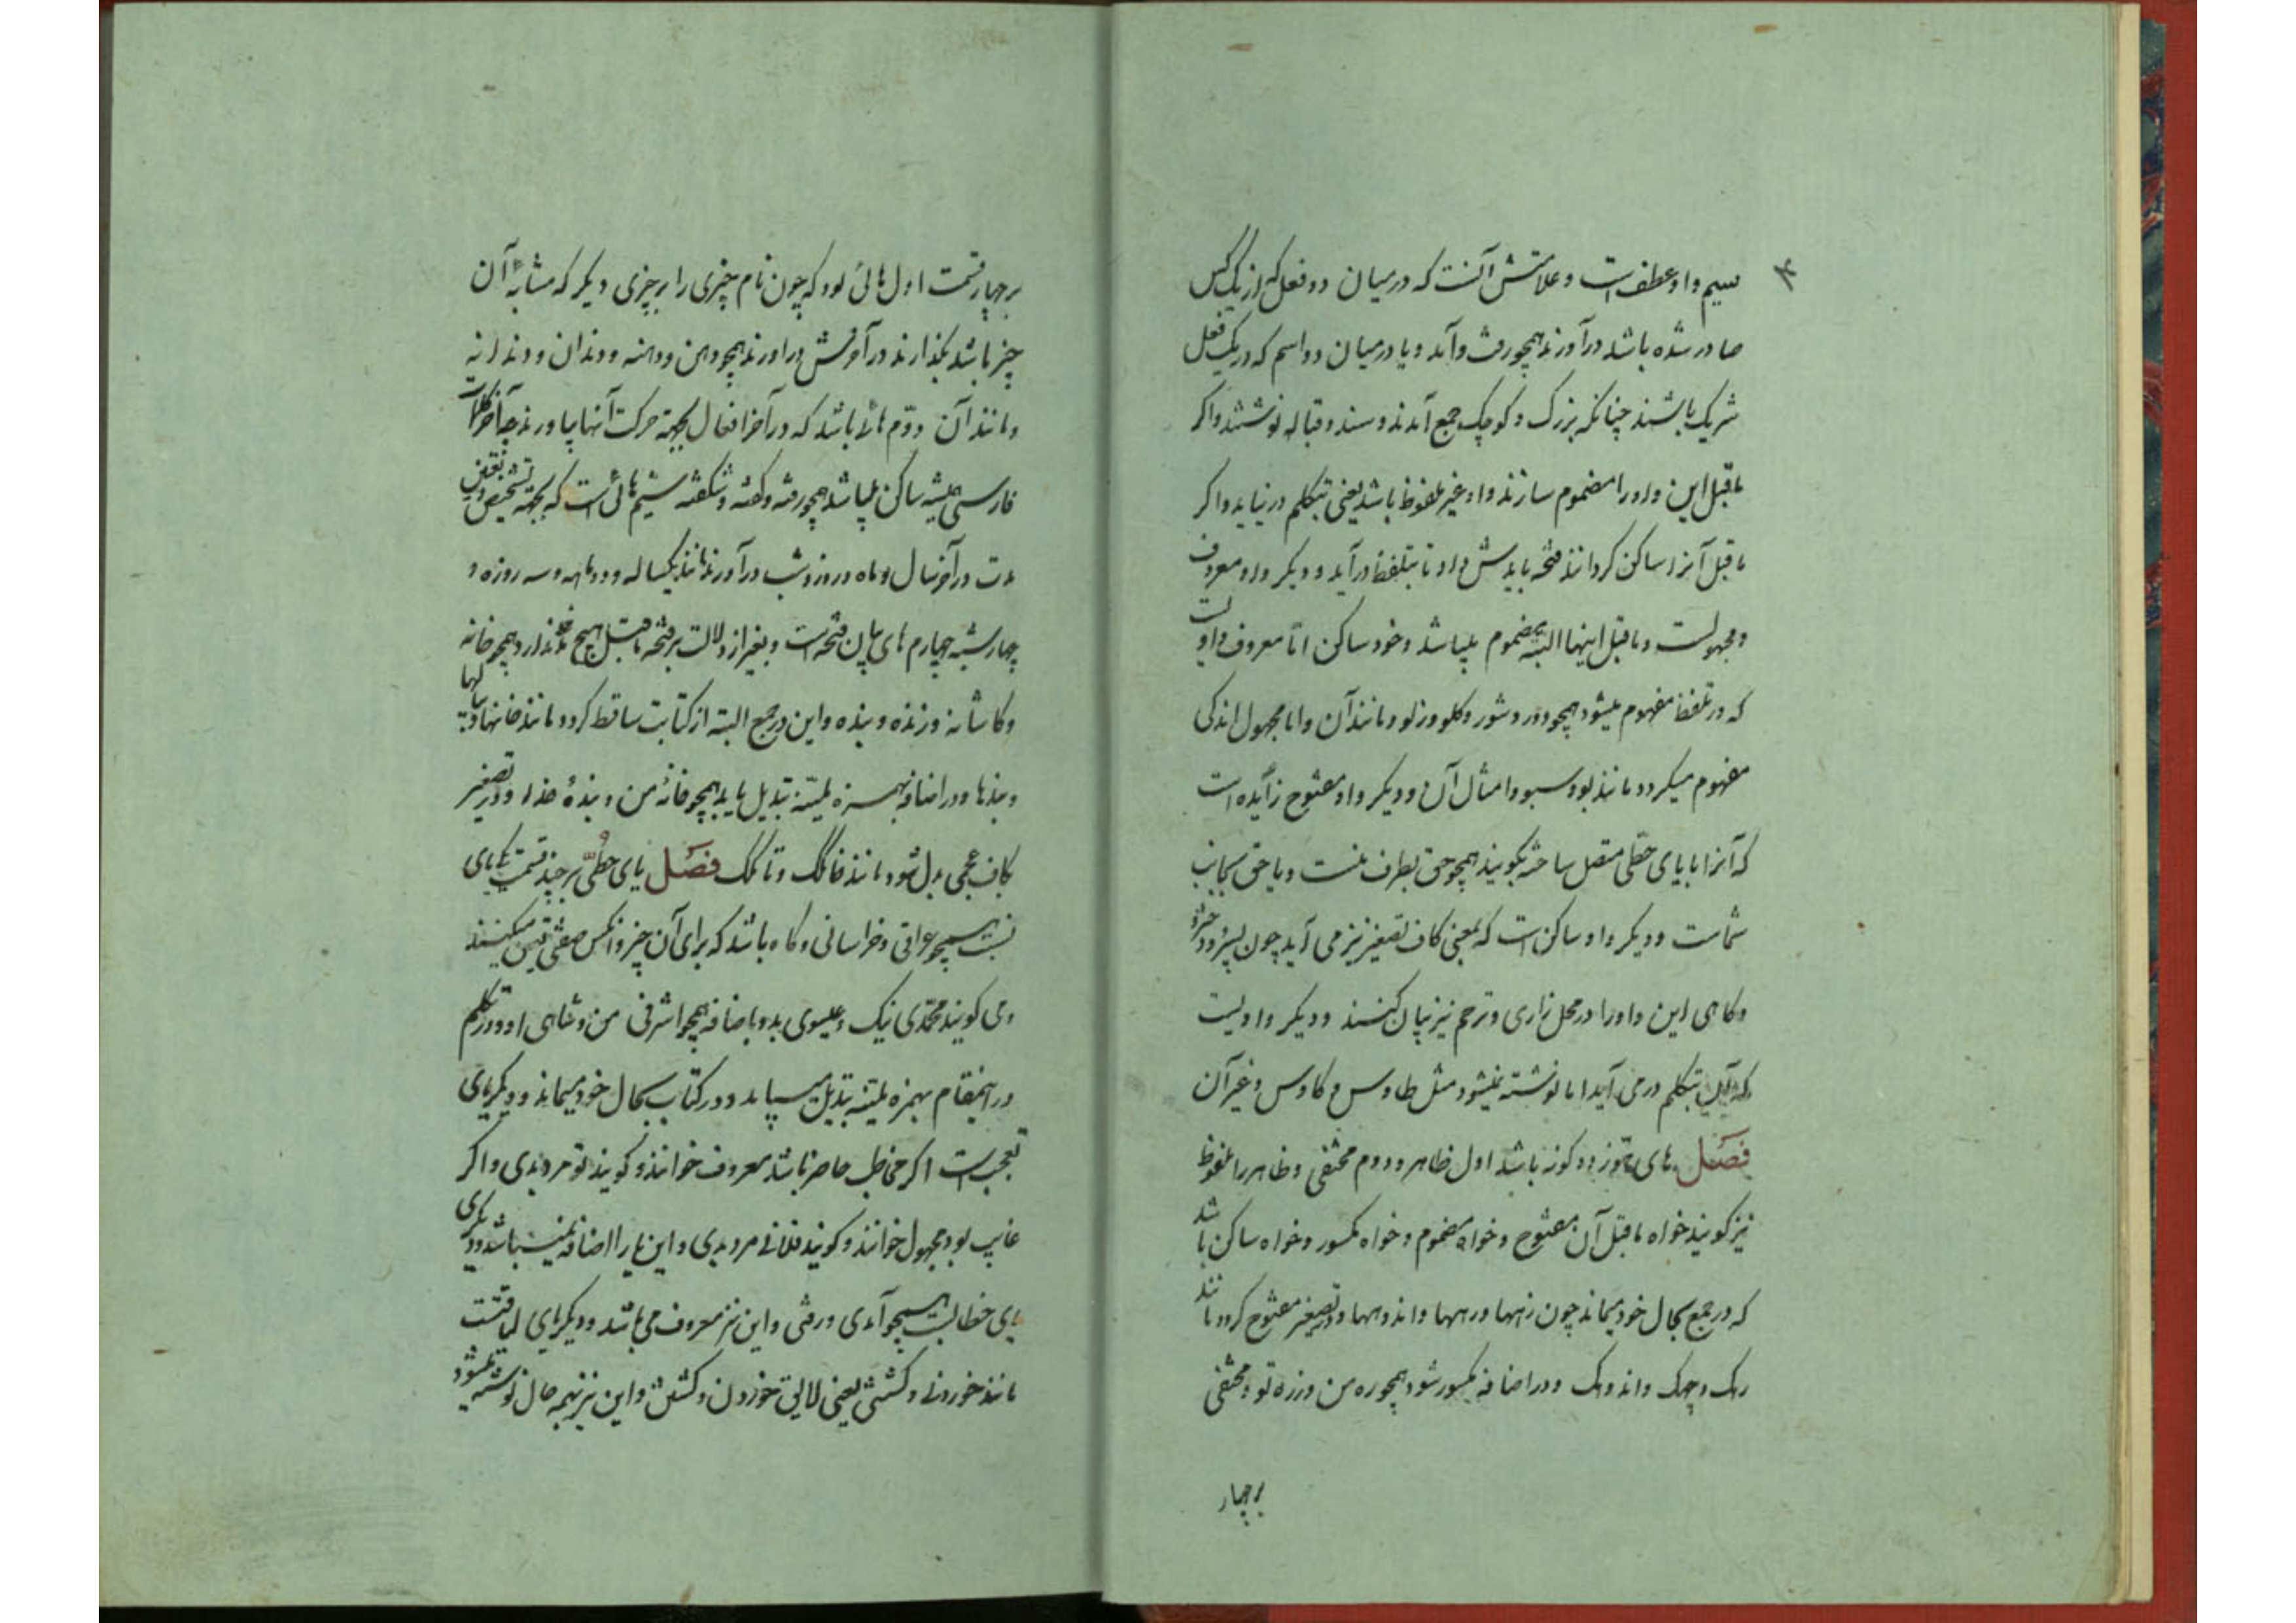 سیم واو عطفست و علامتش آنست که در میان دو فعل که از یک کس
صادر شده باشد درآورند همچو رفت و آمد و یا در میان دو اسم که در یک فعل
شریک باشند چنانکه بزرگ و کوچک جمع آمدند و سند و قباله نوشتند و اگر
ماقبل این واو را مضموم سازند واو غیر ملفوظ باشد یعنی بتکلم در نیاید و اگر
ماقبل آنرا ساکن گردانند فتحه بایدش داد تا بتلفظ درآید و دیگر واو معروف
و مجهولست و ماقبل اینها البته مضموم میباشد و خود ساکن اما معروف واویست
که در تلفظ مفهوم میشود همچو دور و شور و گلو و زلو و مانند آن و اما مجهول اندکی
مفهوم میگردد مانند بو و سبو و امثال آن و دیگر واو مفتوح زایده است
که آنرا با یای حطی متصل ساخته بگویند همچو حق بطرف منست و یا حق بجانب
شماست و دیگر واو ساکن است که بمعنی کاف تصغیر نیز می آید چون پسرو و دخترو
و گاهی این واو را در محل زاری و ترحم نیز بیان کنند و دیگر واویست
که بتکلم در می آید اما نوشته نمیشود مثل طاوس و کاوس و غیر آن
فصل های هوز دو گونه باشد اول ظاهر و دوم مختفی و ظاهر را ملفوظ
نیز گویند خواه ماقبل آن مفتوح و خواه مضموم و خواه مکسور و خواه ساکن باشد
که در جمع بحال خود میماند چون زهها و رهها و اندوهها و در تصغیر مفتوح گردد مانند
رهک و چهک و اندوهک و در اضافه مکسور شود همچو ره من و زره تو و مختفی
بر چهار
بر چهار قسمت اول هائی بود که چون نام چیزی را بر چیزی دیگر که مشابه آن
چیز باشد بگذارند در آخرش درآورند همچو دهن و دهنه و دندان و دندانه
و مانند آن دوم هائی باشد که در آخر افعال بجهة حرکت آنها بیاورند چه آخر کلمات
فارسی همیشه ساکن میباشد همچو رفته و گفته و شکفته سیم هائی است که بجهة تشخیص و تعیین
مدت در آخر سال و ماه و روز و شب درآورند مانند یکساله و دوماهه و سه روزه و
چهارشبه چهارم های بیان فتحه است و بغیر از دلالت بر فتحه ماقبل هیچ نفعی ندارد همچو خانه
و کاشانه و زنده و بنده و این در جمع البته از کتابت ساقط گردد مانند خانها و سالها
و بندها و در اضافه بهمزه ملینه تبدیل یابد همچو خانهٔ من و بندهٔ خدا و در تصغیر
بکاف عجمی بدل شود مانند خانگک و تالگک فصل یای حطی بر چند قسمت یکی یای
نسبت همچو عراقی و خراسانی و گاه باشد که برای آن چیز و آنکس صفتی تعین میکنند
و می گویند محمدی نیک و عیسوی بد و باضافه همچو اشرفی من و شاهی او و در تکلم
در اینمقام بهمزه ملینه تبدیل مییابد و در کتابت بحال خود میماند و دیگر یای
تعجبست اگر مخاطب حاضر باشد معروف خوانند و گویند تو مردیدی و اگر
غایب بود مجهول خوانند و گویند فلانی مردیدی و این یا را اضافه نمیباشد و دیگر
یای خطابست همچو آمدی و رفتی و این نیز معروف می باشد و دیگر یای لیاقتست
مانند خوردنی و کشتنی یعنی لایق خوردن و کشتن و این نیز بهمه حال نوشته میشود